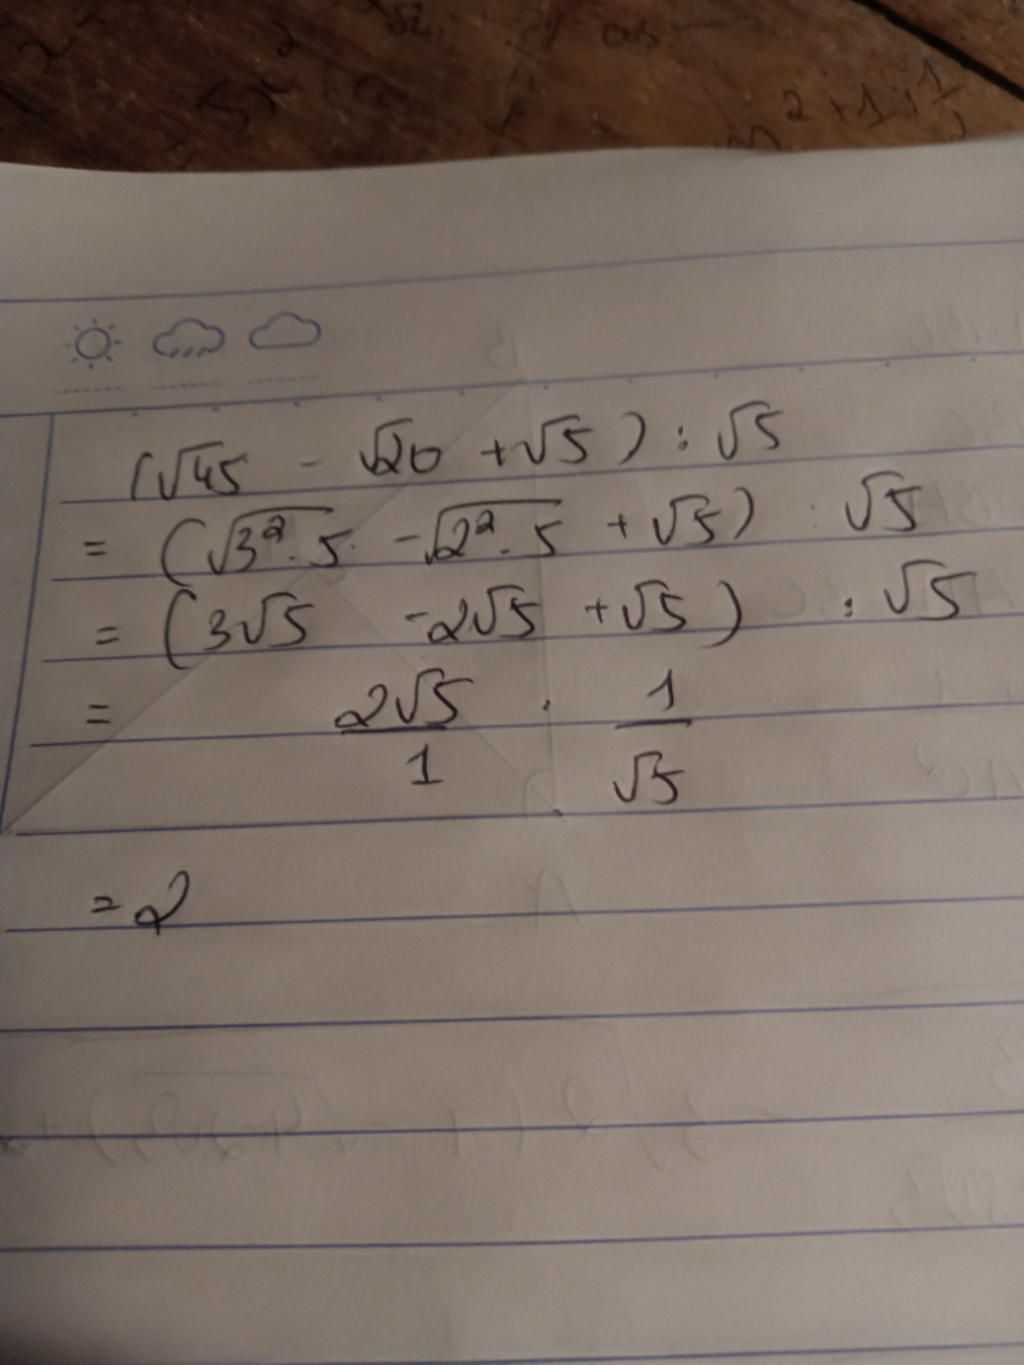 (√45 - √20 + √5) : √5
= (√3². 5 - √2². 5 + √5) : √5
= (3√5 - 2√5 + √5) : √5
= 2√5/1 . 1/√5
= 2